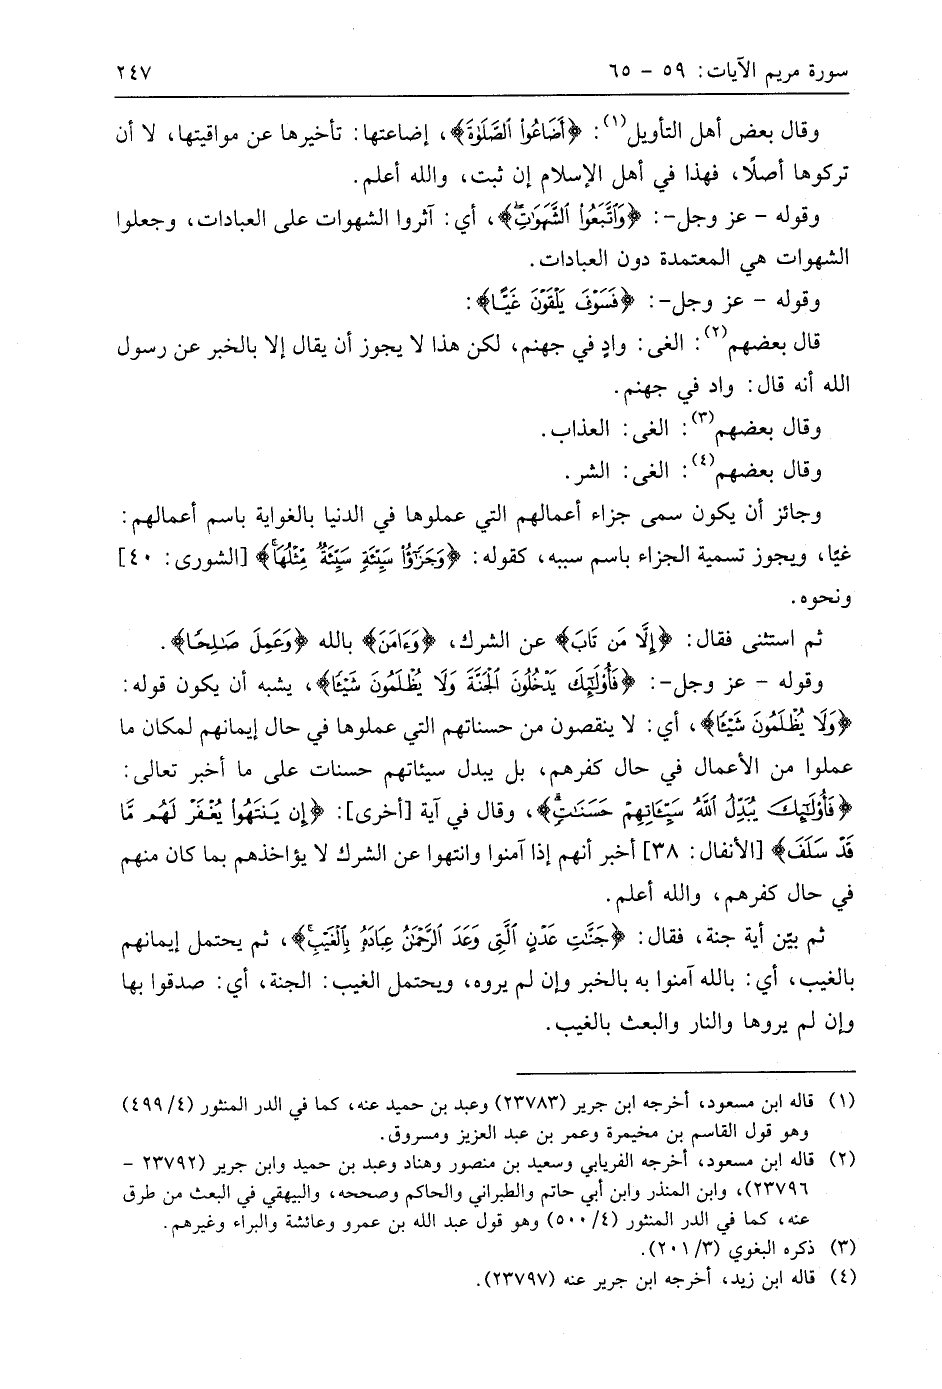 سورة مريم الآيات: ٥٩ - ٦٥ ٢٤٧
وقال بعض أهل التأويل(١): ﴿أَضَاعُواْ ٱلصَّلَوٰةَ﴾، إضاعتها: تأخيرها عن مواقيتها، لا أن
تركوها أصلًا، فهذا في أهل الإسلام إن ثبت، والله أعلم.
وقوله - عز وجل-: ﴿وَٱتَّبَعُواْ ٱلشَّهَوَٰتِۖ﴾، أي: آثروا الشهوات على العبادات، وجعلوا
الشهوات هي المعتمدة دون العبادات.
وقوله - عز وجل-: ﴿فَسَوْفَ يَلْقَوْنَ غَيًّا﴾:
قال بعضهم(٢): الغى: وادٍ في جهنم، لكن هذا لا يجوز أن يقال إلا بالخبر عن رسول
الله أنه قال: واد في جهنم.
وقال بعضهم(٣): الغى: العذاب.
وقال بعضهم(٤): الغى: الشر.
وجائز أن يكون سمى جزاء أعمالهم التي عملوها في الدنيا بالغواية باسم أعمالهم:
غيًا، ويجوز تسمية الجزاء باسم سببه، كقوله: ﴿وَجَزَٰٓؤُاْ سَيِّئَةٖ سَيِّئَةٞ مِّثْلُهَاۖ﴾ [الشورى: ٤٠]
ونحوه.
ثم استثنى فقال: ﴿إِلَّا مَن تَابَ﴾ عن الشرك، ﴿وَءَامَنَ﴾ بالله ﴿وَعَمِلَ صَٰلِحًا﴾.
وقوله - عز وجل-: ﴿فَأُوْلَٰٓئِكَ يَدْخُلُونَ ٱلْجَنَّةَ وَلَا يُظْلَمُونَ شَيْـًٔا﴾، يشبه أن يكون قوله:
﴿وَلَا يُظْلَمُونَ شَيْـًٔا﴾، أي: لا ينقصون من حسناتهم التي عملوها في حال إيمانهم لمكان ما
عملوا من الأعمال في حال كفرهم، بل يبدل سيئاتهم حسنات على ما أخبر تعالى:
﴿فَأُوْلَٰٓئِكَ يُبَدِّلُ ٱللَّهُ سَيِّـَٔاتِهِمْ حَسَنَٰتٖۗ﴾، وقال في آية [أخرى]: ﴿إِن يَنتَهُواْ يُغْفَرْ لَهُم مَّا
قَدْ سَلَفَ﴾ [الأنفال: ٣٨] أخبر أنهم إذا آمنوا وانتهوا عن الشرك لا يؤاخذهم بما كان منهم
في حال كفرهم، والله أعلم.
ثم بيّن أية جنة، فقال: ﴿جَنَّٰتِ عَدْنٍ ٱلَّتِي وَعَدَ ٱلرَّحْمَٰنُ عِبَادَهُۥ بِٱلْغَيْبِۚ﴾، ثم يحتمل إيمانهم
بالغيب، أي: بالله آمنوا به بالخبر وإن لم يروه، ويحتمل الغيب: الجنة، أي: صدقوا بها
وإن لم يروها والنار والبعث بالغيب.
(١) قاله ابن مسعود، أخرجه ابن جرير (٢٣٧٨٣) وعبد بن حميد عنه، كما في الدر المنثور (٤/ ٤٩٩)
وهو قول القاسم بن مخيمرة وعمر بن عبد العزيز ومسروق.
(٢) قاله ابن مسعود، أخرجه الفريابي وسعيد بن منصور وهناد وعبد بن حميد وابن جرير (٢٣٧٩٢ -
٢٣٧٩٦)، وابن المنذر وابن أبي حاتم والطبراني والحاكم وصححه، والبيهقي في البعث من طرق
عنه، كما في الدر المنثور (٤/ ٥٠٠) وهو قول عبد الله بن عمرو وعائشة والبراء وغيرهم.
(٣) ذكره البغوي (٣/ ٢٠١).
(٤) قاله ابن زيد، أخرجه ابن جرير عنه (٢٣٧٩٧).